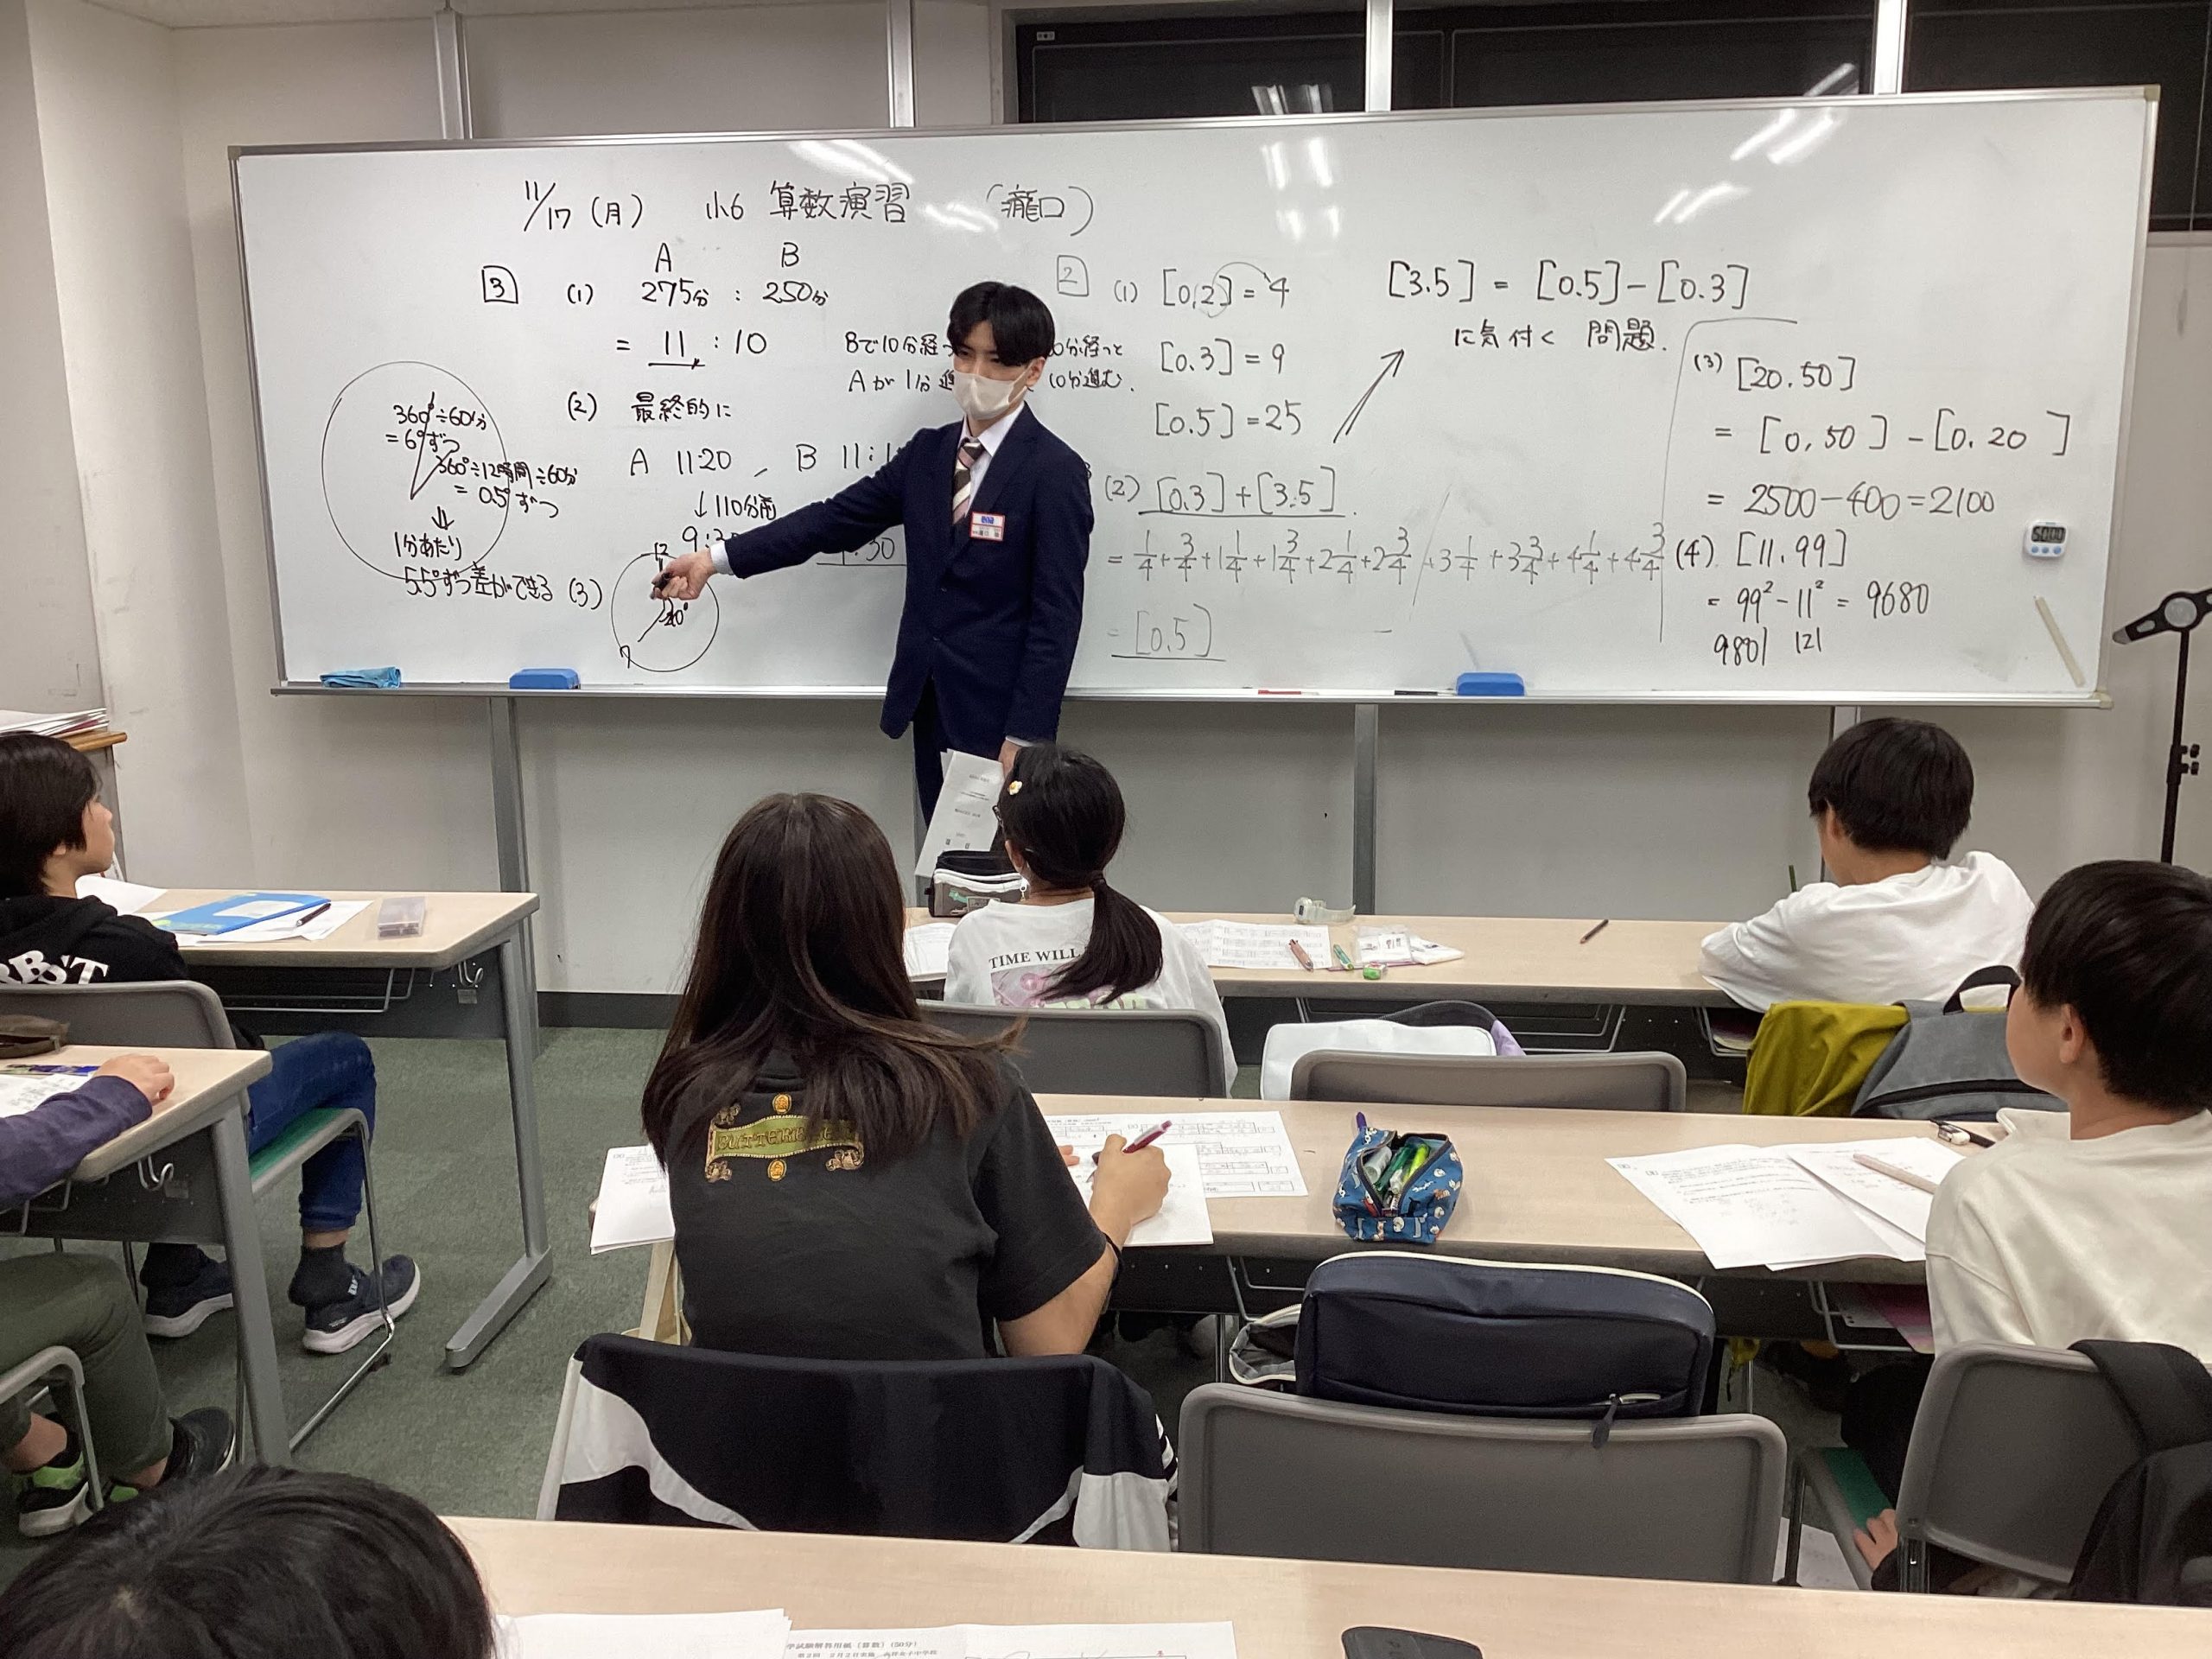 11/17（月） 小6 算数演習 （瀧口）
3
A B
(1) 275分 : 250分
= 11 : 10
Bで10分経つ
Aが1分進
0分経つと
10分進む.
(2) 最終的に
A 11:20 , B 11:1
↓110分前
9:3
:30
(3)
12
7
360°÷60分
= 6°ずつ
360°÷12時間÷60分
= 0.5°ずつ
⇓
1分あたり
5.5°ずつ差ができる
2
(1) [0,2] = 4
[0.3] = 9
[0.5] = 25
[3.5] = [0.5] - [0.3]
に気付く 問題.
(2) [0.3] + [3.5].
= 1/4 + 3/4 + 1 1/4 + 1 3/4 + 2 1/4 + 2 3/4 + 3 1/4 + 3 3/4 + 4 1/4 + 4 3/4
= [0.5]
(3) [20.50]
= [0,50] - [0.20]
= 2500 - 400 = 2100
(4) [11.99]
= 99² - 11² = 9680
9801 121
ena
TIME WILL